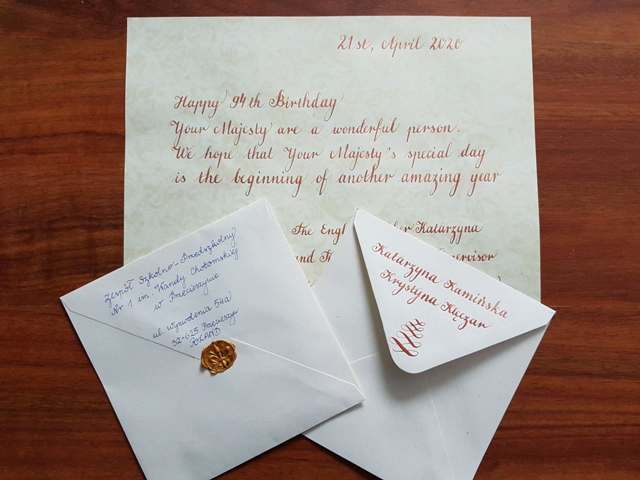 21st, April 2020
Happy 94th Birthday
Your Majesty are a wonderful person.
We hope that Your Majesty's special day
is the beginning of another amazing year
The Engl
Katarzyna
Zespół Szkolno-Przedszkolny
Nr 1 im. Wandy Chotomskiej
w Brzeszczach
ul. Wyzwolenia 54a
POLAND
Katarzyna Kamińska
Krystyna Kęczar